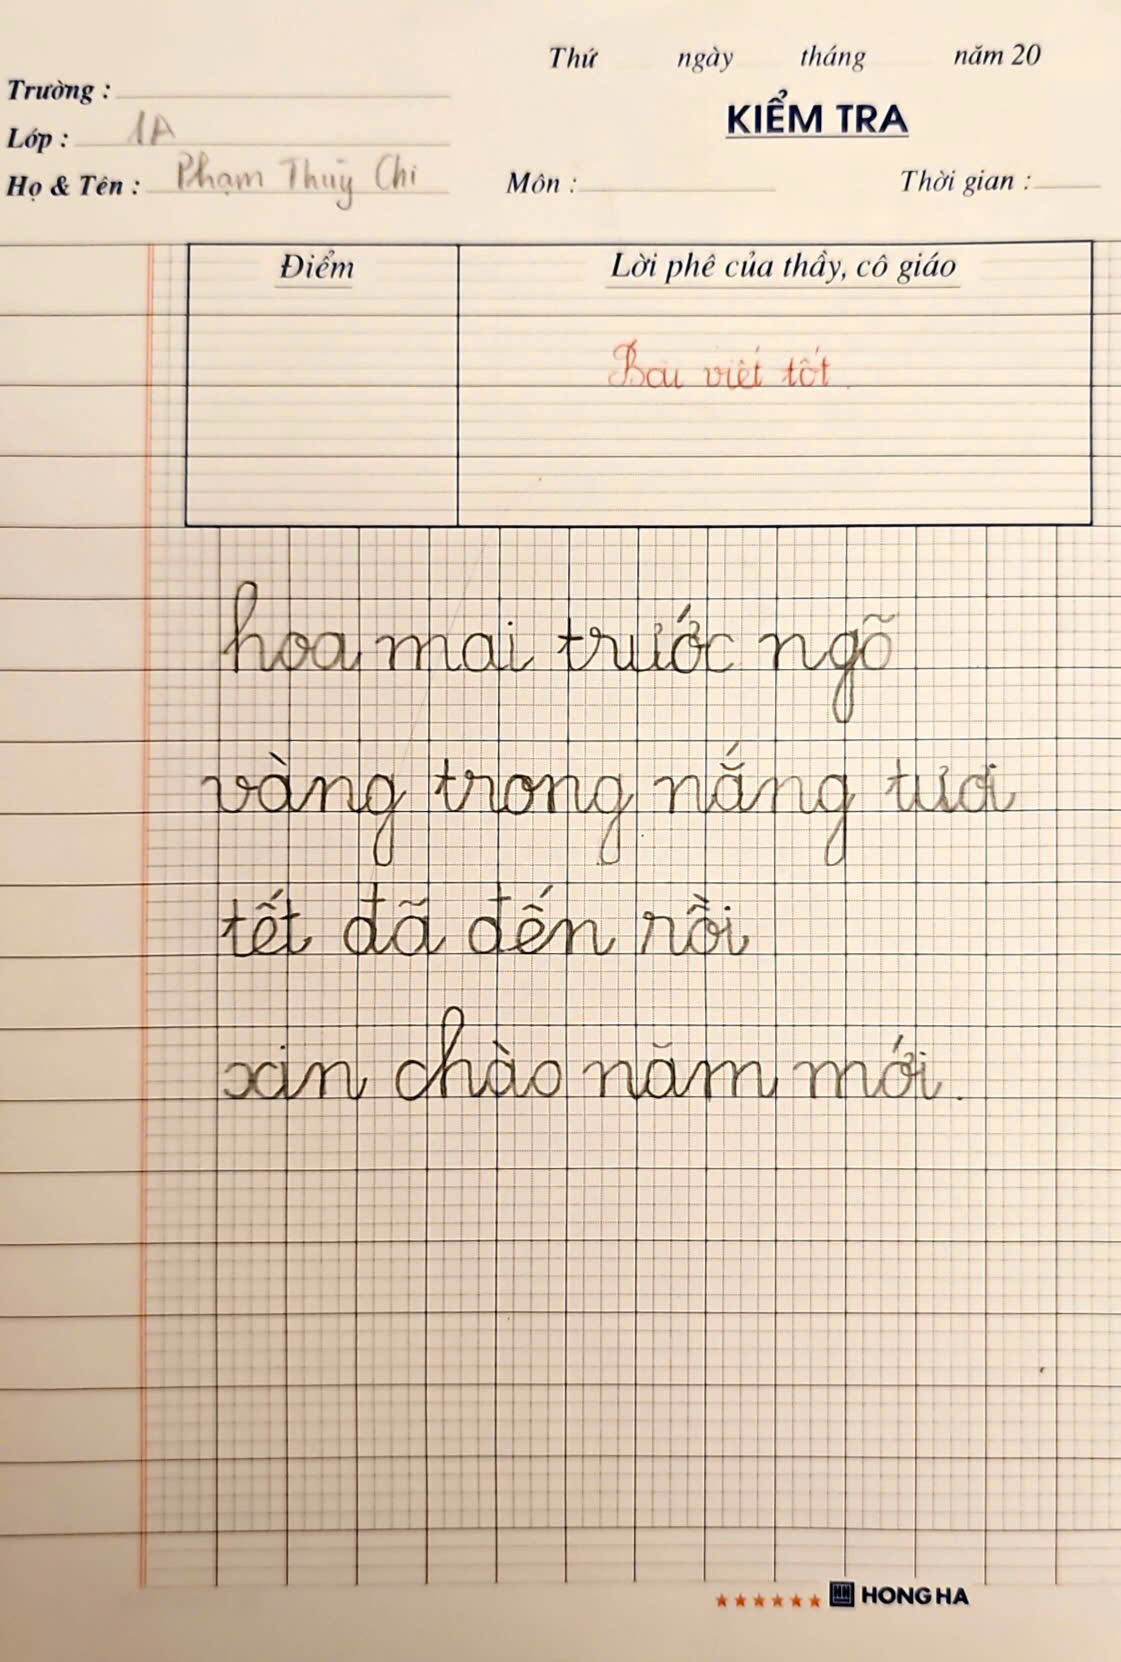 Thứ ngày tháng năm 20
Trường :
KIỂM TRA
Lớp : 1A
Họ & Tên : Phạm Thùy Chi Môn : Thời gian :
Điểm Lời phê của thầy, cô giáo
Bài viết tốt
hoa mai trước ngõ
vàng trong nắng tươi
tết đã đến rồi
xin chào năm mới.
HONG HA